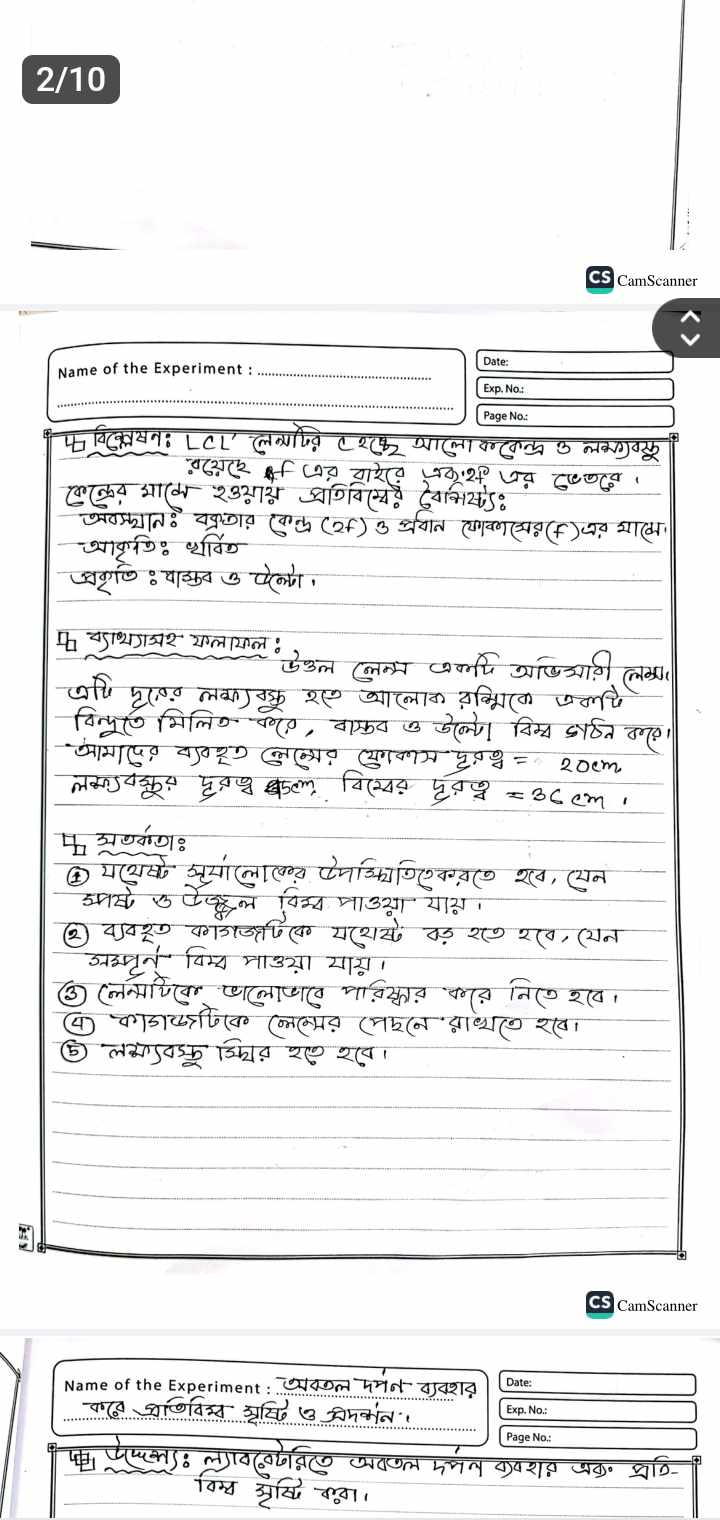 2/10
CS CamScanner
Name of the Experiment :
Date:
Exp. No.:
Page No.:
বিশ্লেষণঃ LCL' লেন্সটির C হচ্ছে আলোককেন্দ্র ও লক্ষ্যবস্তু
রয়েছে f এর বাইরে এবং 2f এর ভেতরে।
কেন্দ্রের মাঝে হওয়ায় প্রতিবিম্বের বৈশিষ্ট্যঃ
অবস্থানঃ বক্রতার কেন্দ্র (2f) ও প্রধান ফোকাসের (f) এর মাঝে।
আকৃতিঃ খর্বিত
প্রকৃতি : বাস্তব ও উল্টো।
ব্যাখ্যাসহ ফলাফল :
উত্তল লেন্স একটি অভিসারী লেন্স।
এটি দূরের লক্ষ্যবস্তু হতে আলোক রশ্মিকে একটি
বিন্দুতে মিলিত করে, বাস্তব ও উল্টো বিম্ব গঠন করে।
আমাদের ব্যবহৃত লেন্সের ফোকাস দূরত্ব = 20cm
লক্ষ্যবস্তুর দূরত্ব বিম্বের দূরত্ব = 36 cm ।
সতর্কতাঃ
① যথেষ্ট সূর্যালোকের উপস্থিতিতে করতে হবে, যেন
স্পষ্ট ও উজ্জ্বল বিম্ব পাওয়া যায়।
② ব্যবহৃত কাগজটিকে যথেষ্ট বড় হতে হবে, যেন
সম্পূর্ন বিম্ব পাওয়া যায়।
③ লেন্সটিকে ভালোভাবে পরিষ্কার করে নিতে হবে।
④ কাগজটিকে লেন্সের পেছনে রাখতে হবে।
⑤ লক্ষ্যবস্তু স্থির হতে হবে।
CS CamScanner
Name of the Experiment : অবতল দর্পন ব্যবহার
করে প্রতিবিম্ব সৃষ্টি ও প্রদর্শন।
Date:
Exp. No.:
Page No.:
উদ্দেশ্যঃ ল্যাবরেটরিতে অবতল দর্পন ব্যবহার এবং প্রতি-
বিম্ব সৃষ্টি করা।